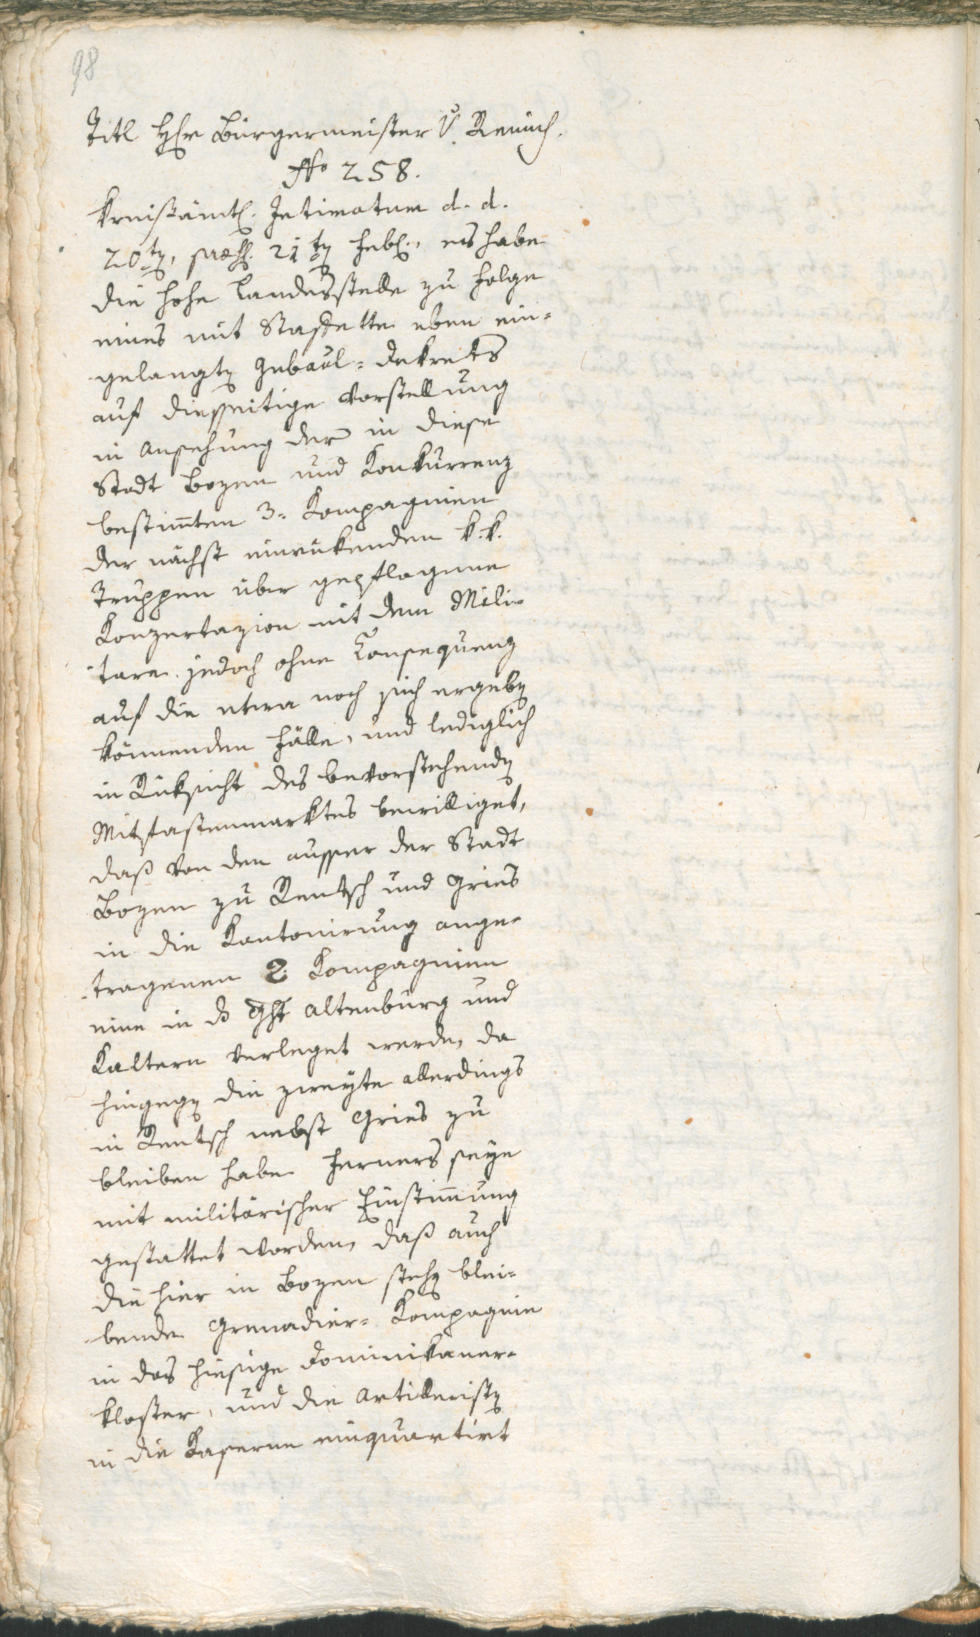 98
Titl Hr Bürgermeister V. Remich.
No 258.
Kreißämtl. Intimatum d. d.
20ten, praes. 21ten Febl., es habe
die hohe Landesstelle zu Folge
eines mit Staffette eben ein-
gelangten Gubaul-Dekrets
auf diesseitige Vorstellung
in Ansehung der in diese
Stadt Bozen und Konkurrenz
bestimten 3. Kompagnien
der nächst einrükenden k. k.
Truppen über gepflogene
Konzertazion mit dem Mili-
tare jedoch ohne Consequenz
auf die etwa noch sich ergeben
könnenden Fälle, und lediglich
in Rüksicht des bevorstehenden
Mitfastenmarktes bewilliget,
daß von den ausser der Stadt
Bozen zu Rentsch und Gries
in die Kantonirung ange-
tragenen 2. Kompagnien
eine in das Ght Altenburg und
Kaltern verleget werde, da
hingegen die zweyte allerdings
in Rentsch nebst Gries zu
bleiben habe. Ferners seye
mit militärischer Einstimung
gestattet worden, daß auch
die hier in Bozen stehen blei-
bende Grenadier-Kompagnie
in das hiesige Dominikaner-
kloster, und die Artilleristen
in die Kaserne einquartirt